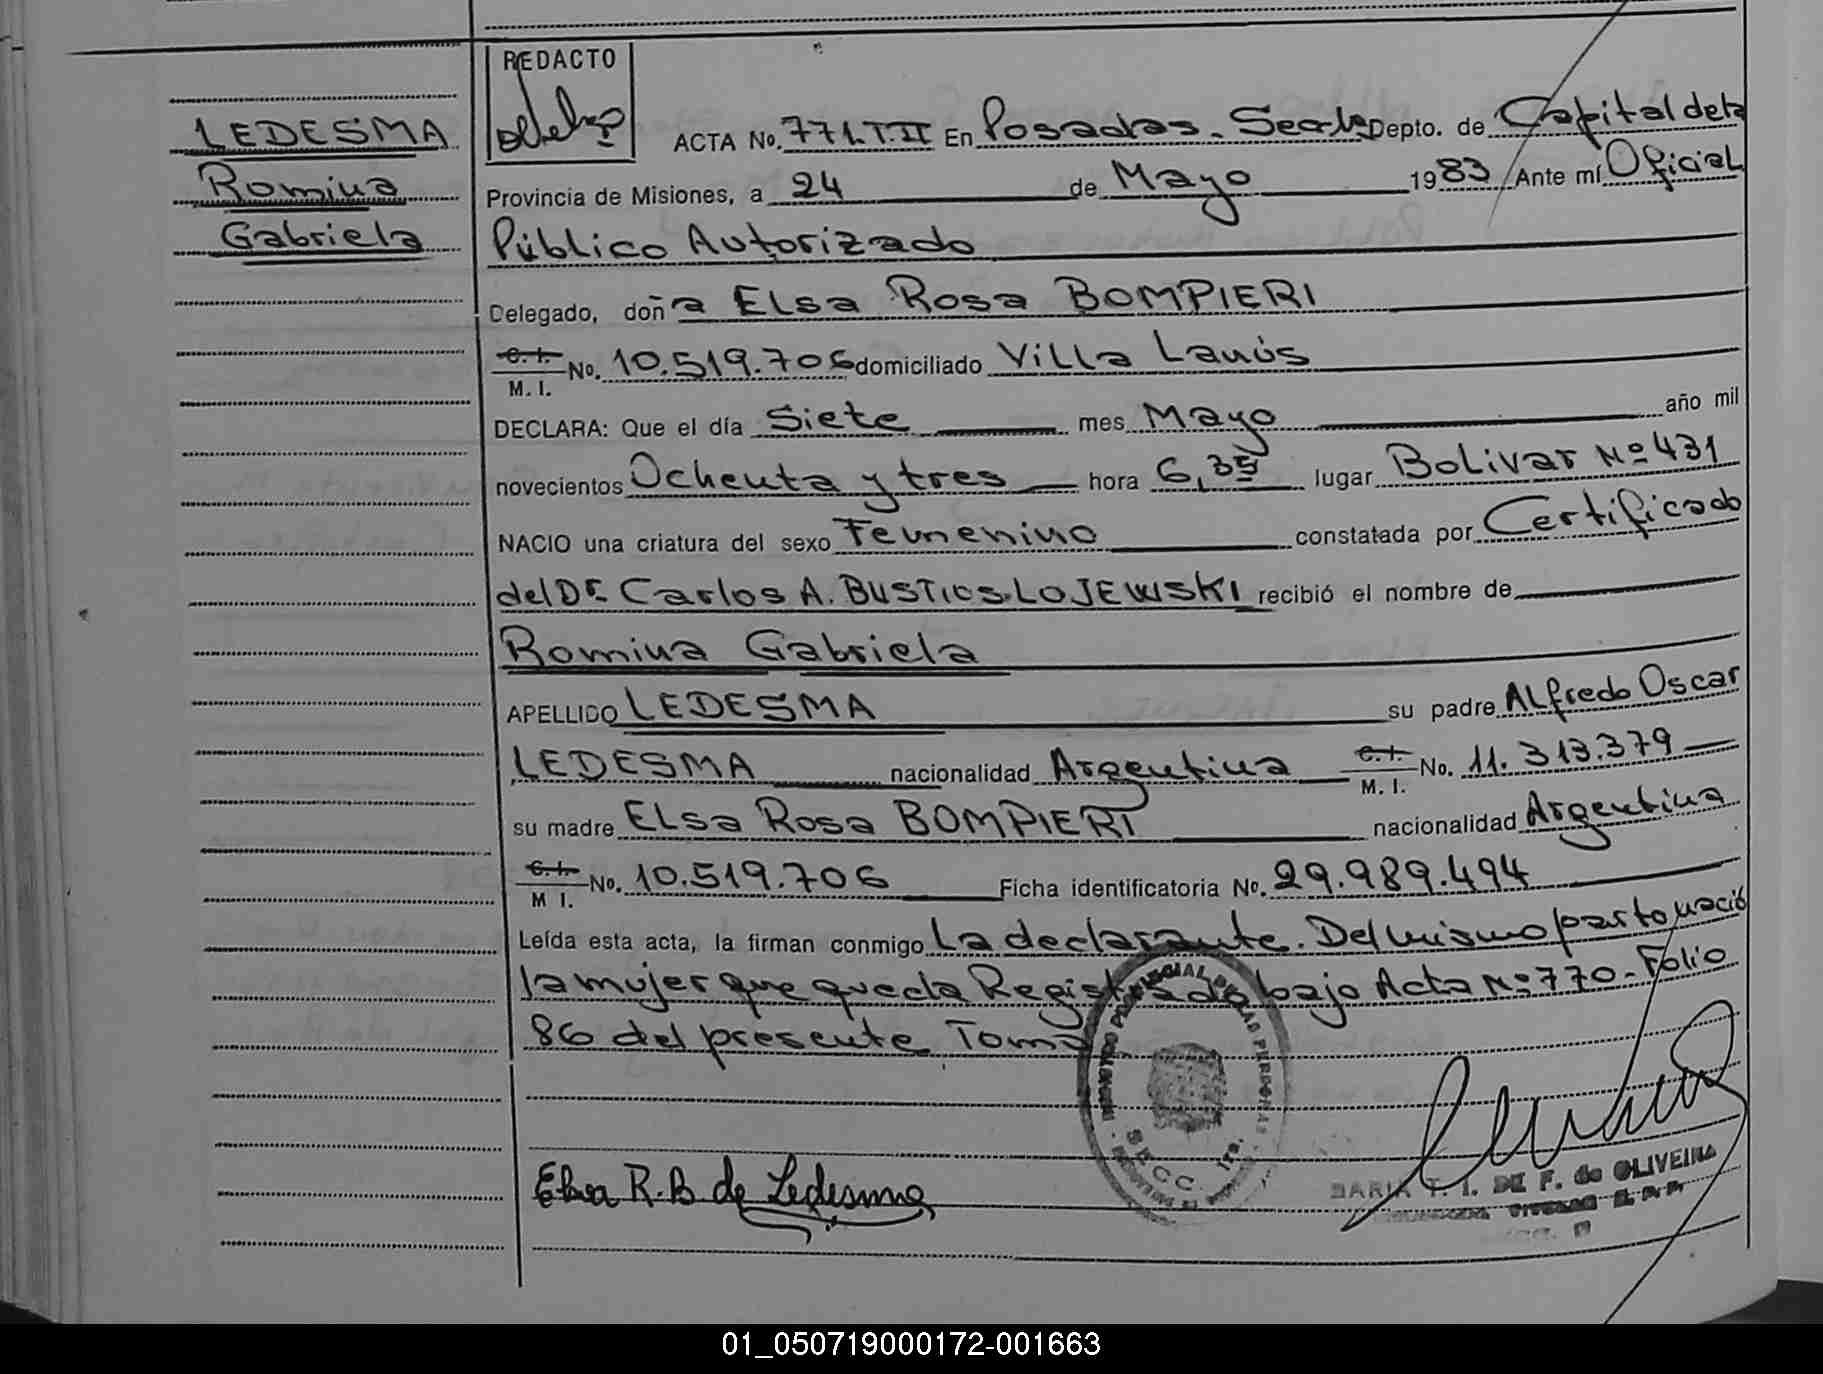 REDACTO
LEDESMA
Romina
Gabriela
ACTA No. 771.T.II En Posadas. Secc. 1a Depto. de Capital de la
Provincia de Misiones, a 24 de Mayo 1983 Ante mí Oficial
Público Autorizado
Delegado, doña Elsa Rosa BOMPIERI
C. I.
M. I. No. 10.519.706 domiciliado Villa Lanús
DECLARA: Que el día Siete mes Mayo año mil
novecientos Ochenta y tres hora 6,35 lugar Bolivar Nº 431
NACIO una criatura del sexo Femenino constatada por Certificado
del Dr. Carlos A. BUSTIOS LOJEWSKI recibió el nombre de
Romina Gabriela
APELLIDO LEDESMA su padre Alfredo Oscar
LEDESMA nacionalidad Argentina C. I. M. I. No. 11.313.379
su madre Elsa Rosa BOMPIERI nacionalidad Argentina
C. I.
M I. No. 10.519.706 Ficha identificatoria No. 29.989.494
Leída esta acta, la firman conmigo La declarante. Del mismo parto nació
la mujer que queda Registrada bajo Acta Nº 770 - Folio
86 del presente Tomo
REGISTRO PROVINCIAL DE LAS PERSONAS
SECC. 1ra.
Elsa R. B. de Ledesma
MARIA T. I. DE F. de OLIVEIRA
01_050719000172-001663